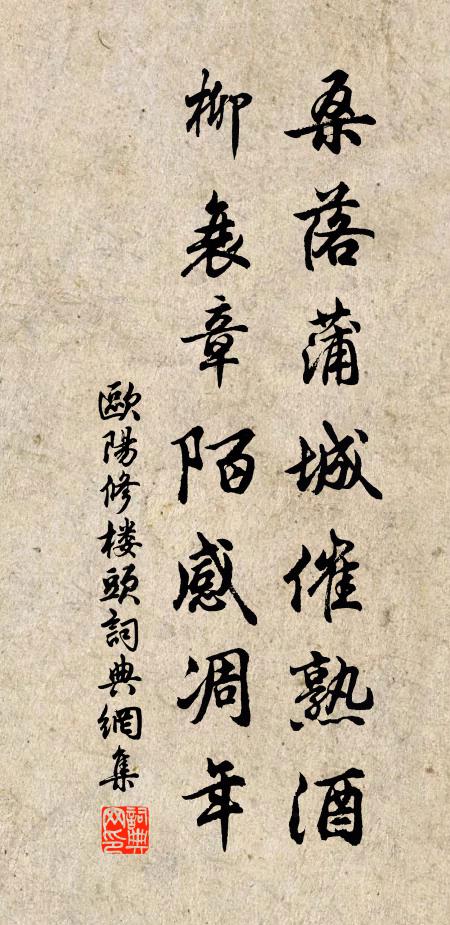 桑落蒲城催熟酒
柳衰章陌感凋年
歐陽修楼頭詞典網集
詞典網印